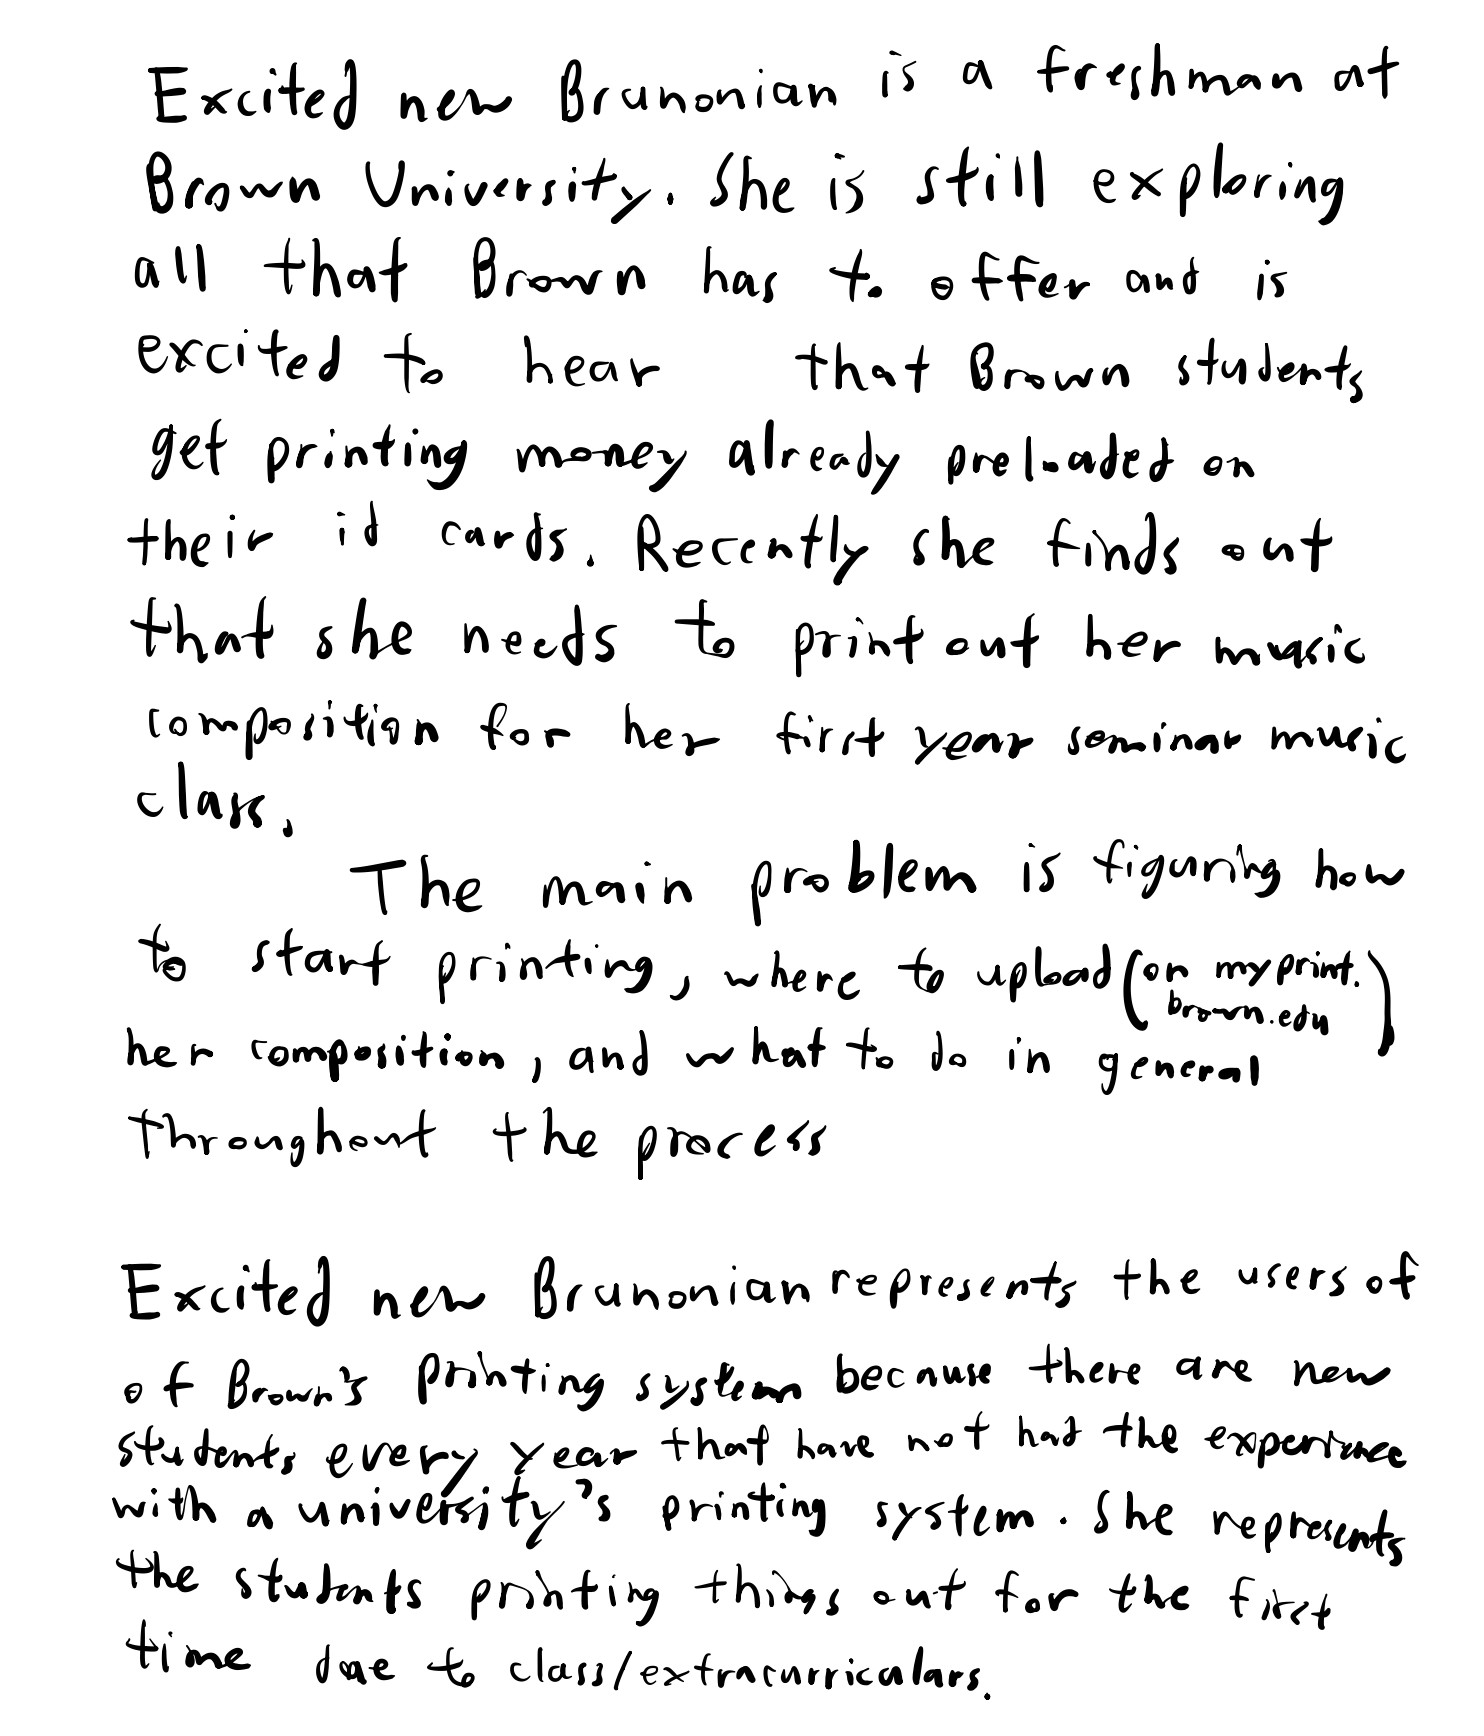 Excited new Brunonian is a freshman at
Brown University. She is still exploring
all that Brown has to offer and is
excited to hear that Brown students
get printing money already preloaded on
their id cards. Recently she finds out
that she needs to print out her music
composition for her first year seminar music
class.
The main problem is figuring how
to start printing, where to upload (on myprint.
brown.edu)
her composition, and what to do in general
throughout the process
Excited new Brunonian represents the users of
of Brown's printing system because there are new
students every year that have not had the experience
with a university's printing system. She represents
the students printing things out for the first
time due to class/extracurriculars.